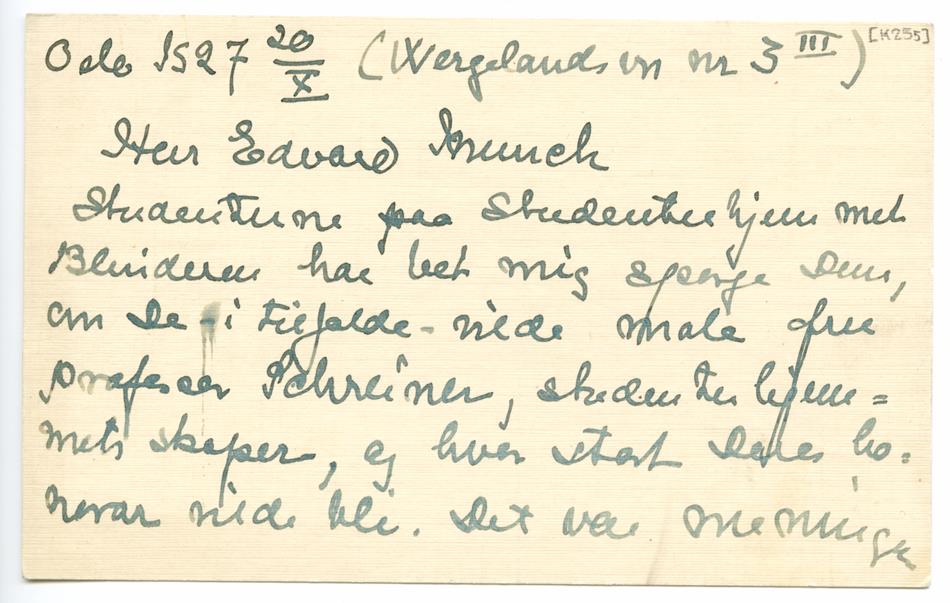 Oslo 1927 20/X (Wergelandsvn nr 3 III) [K255]
Herr Edvard Munch
Studenterne paa Studenterhjemmet
Blindern har bet mig spørge Dem,
om De – i tilfælde – vilde male fru
professor Schreiner, studenterhjem=
mets skaper, og hvor stort Deres ho-
norar vilde bli. Det var meningen